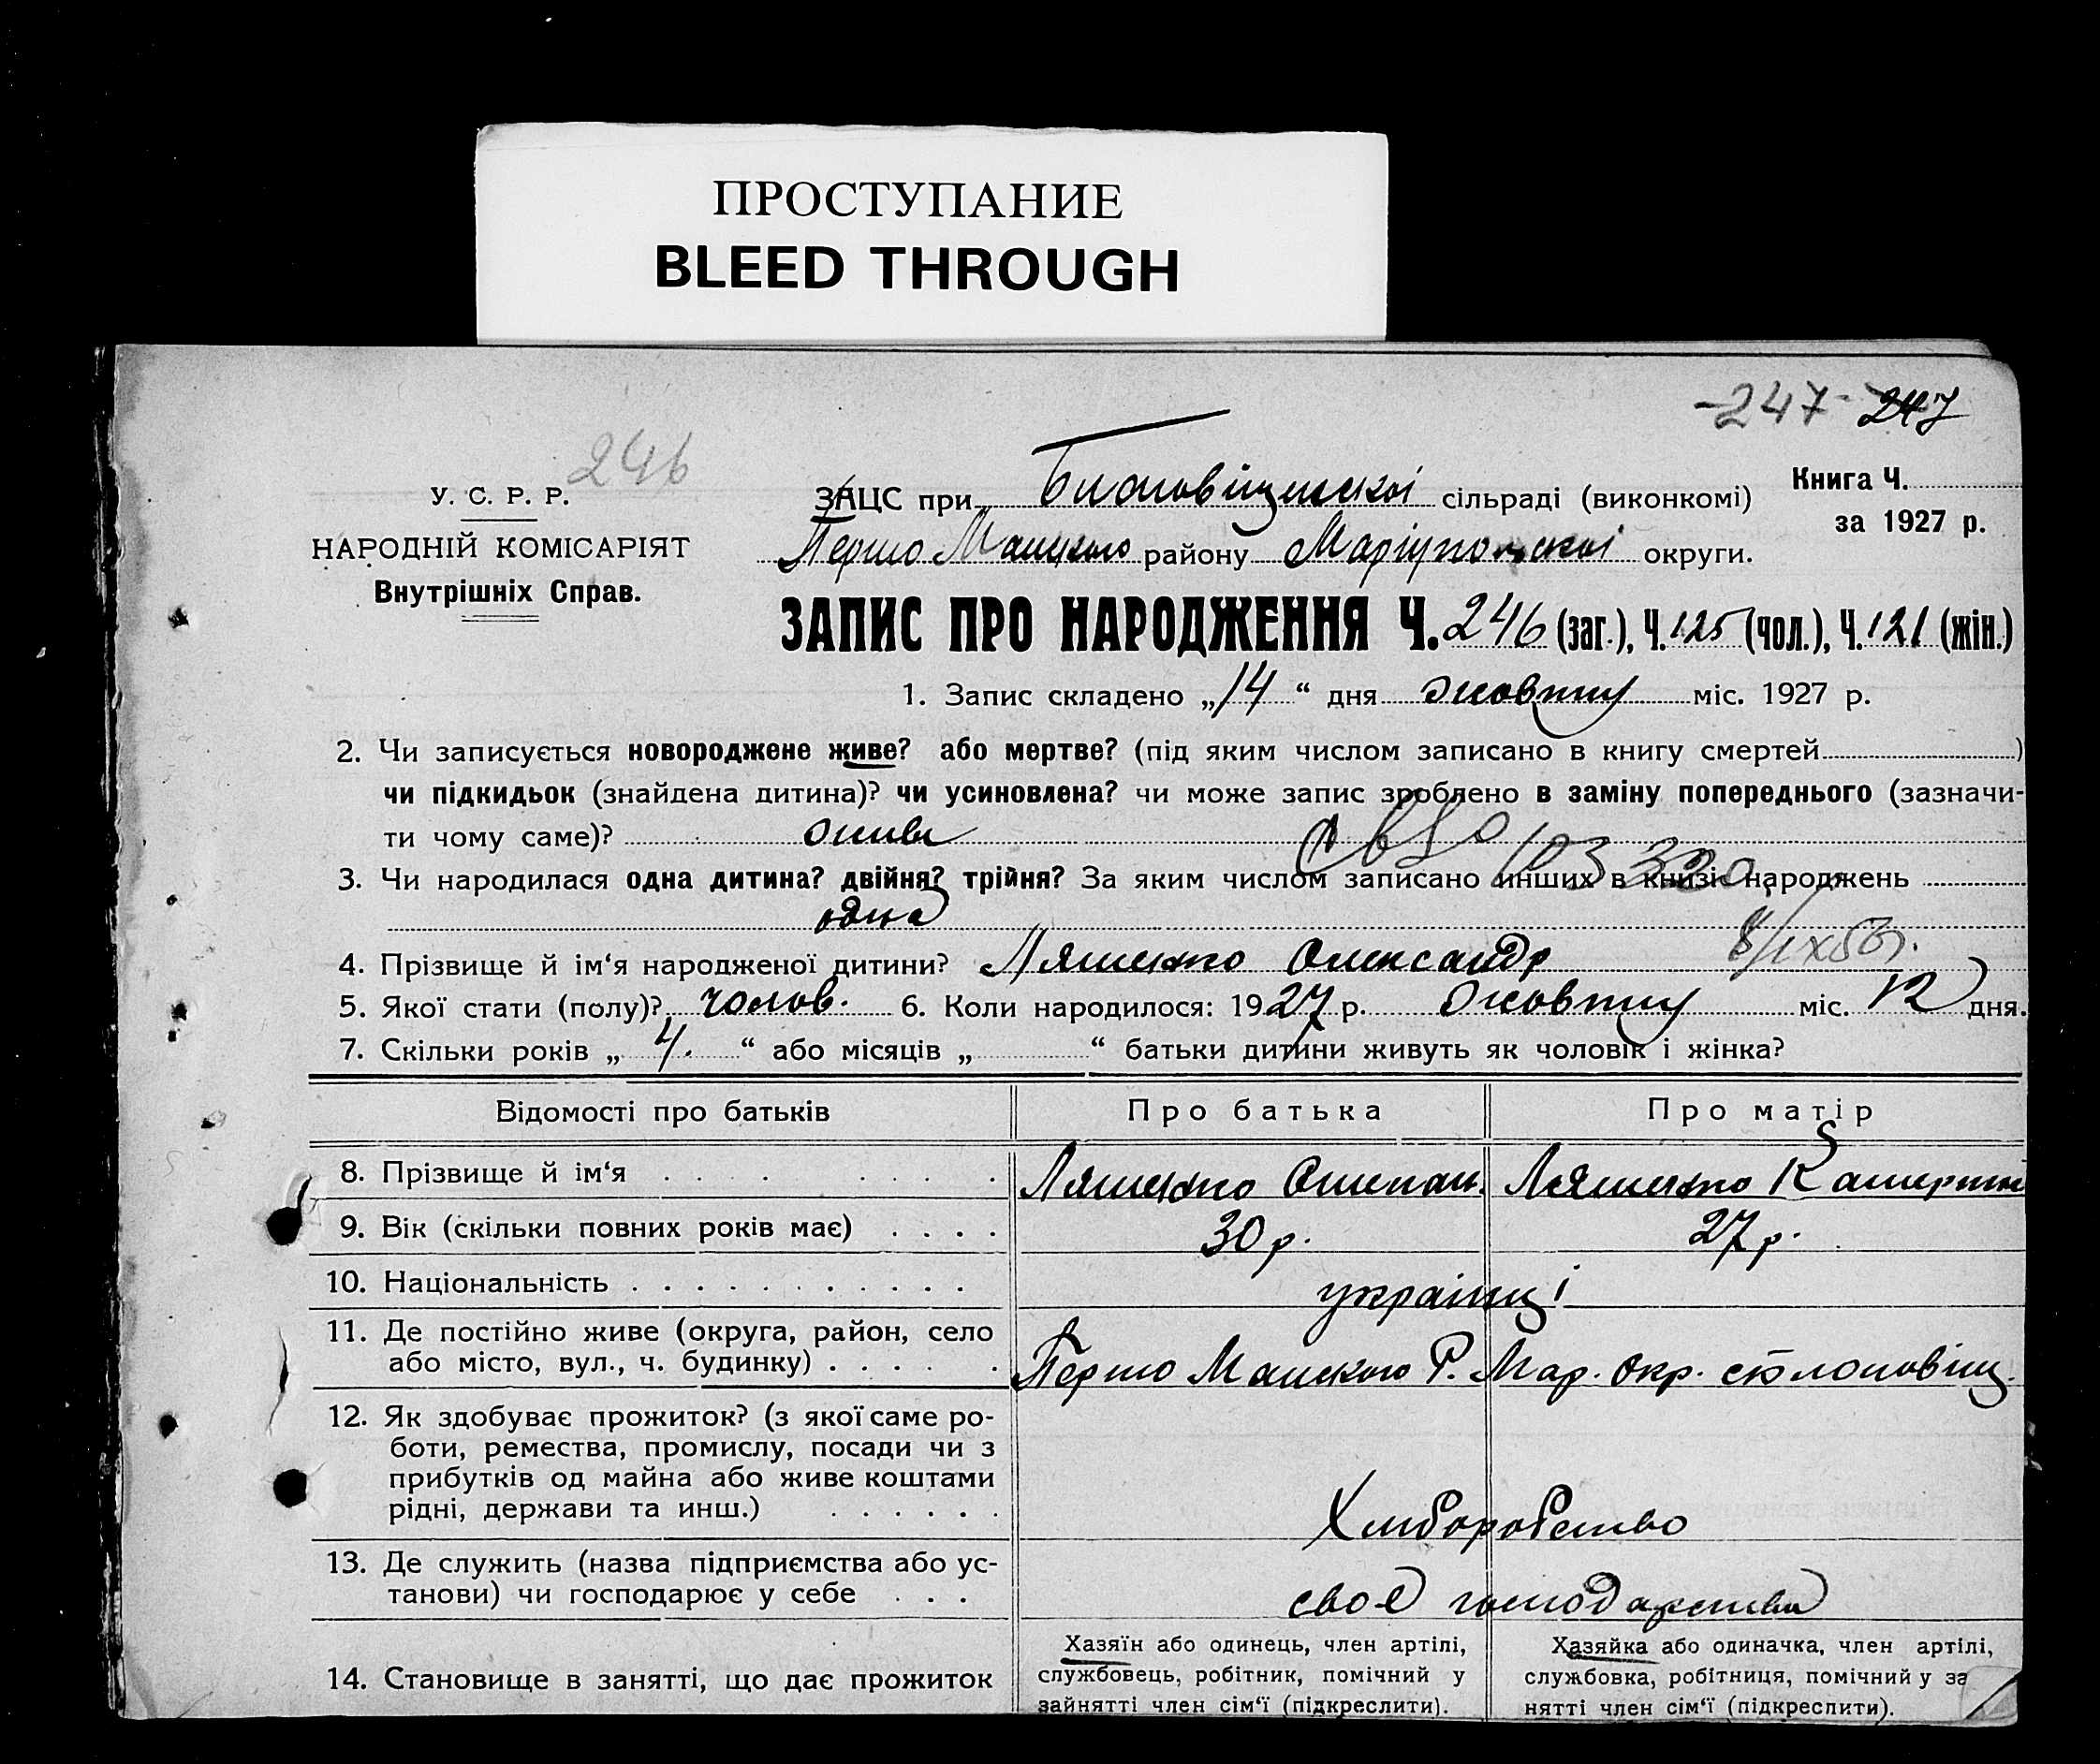 ПРОСТУПАНИЕ
BLEED THROUGH
-247- 247
246
У. С. Р. Р.
НАРОДНІЙ КОМІСАРІЯТ
Внутрішніх Справ.
ЗАЦС при сільраді (виконкомі)
Книга Ч.
за 1927 р.
Першо Майського району Маріупольської округи.
ЗАПИС ПРО НАРОДЖЕННЯ Ч. 246 (заг.), Ч. 125 (чол.), Ч. 121 (жін.)
1. Запис складено „14“ дня жовтня міс. 1927 р.
2. Чи записується новороджене живе? або мертве? (під яким числом записано в книгу смертей )
чи підкидьок (знайдена дитина)? чи усиновлена? чи може запис зроблено в заміну попереднього (зазначи-
ти чому саме)? живе
103320
3. Чи народилася одна дитина? двійня? трійня? За яким числом записано инших в книзі народжень
одна
4. Прізвище й ім‘я народженої дитини? Ляшенко Олександр
5. Якої стати (полу)? чолов. 6. Коли народилося: 1927 р. жовтня міс. 12 дня.
7. Скільки років „ 4. “ або місяців „ “ батьки дитини живуть як чоловік і жінка?
Відомості про батьків Про батька Про матір
8. Прізвище й ім‘я Ляшенко Ляшенко
9. Вік (скільки повних років має) 30 р. 27 р.
10. Національність українці
11. Де постійно живе (округа, район, село
або місто, вул., ч. будинку) Першо Майського Р. Мар. Окр.
12. Як здобуває прожиток? (з якої саме ро-
боти, ремества, промислу, посади чи з
прибутків од майна або живе коштами
рідні, держави та инш.)
Хліборобство
13. Де служить (назва підприємства або ус-
танови) чи господарює у себе
своє господарство
14. Становище в занятті, що дає прожиток
Хазяїн або одинець, член артілі,
службовець, робітник, помічний у
зайнятті член сім‘ї (підкреслити).
Хазяйка або одиначка, член артілі,
службовка, робітниця, помічний у за
нятті член сім‘ї (підкреслити).